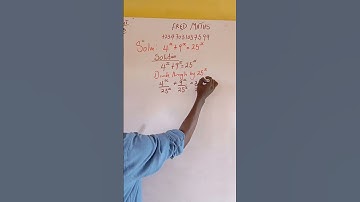 FRED MATHS
Solve: 4ˣ+9ˣ=25ˣ
Solution
4ˣ+9ˣ=25ˣ
Divide through by 25ˣ
4ˣ/25ˣ + 9ˣ/25ˣ =